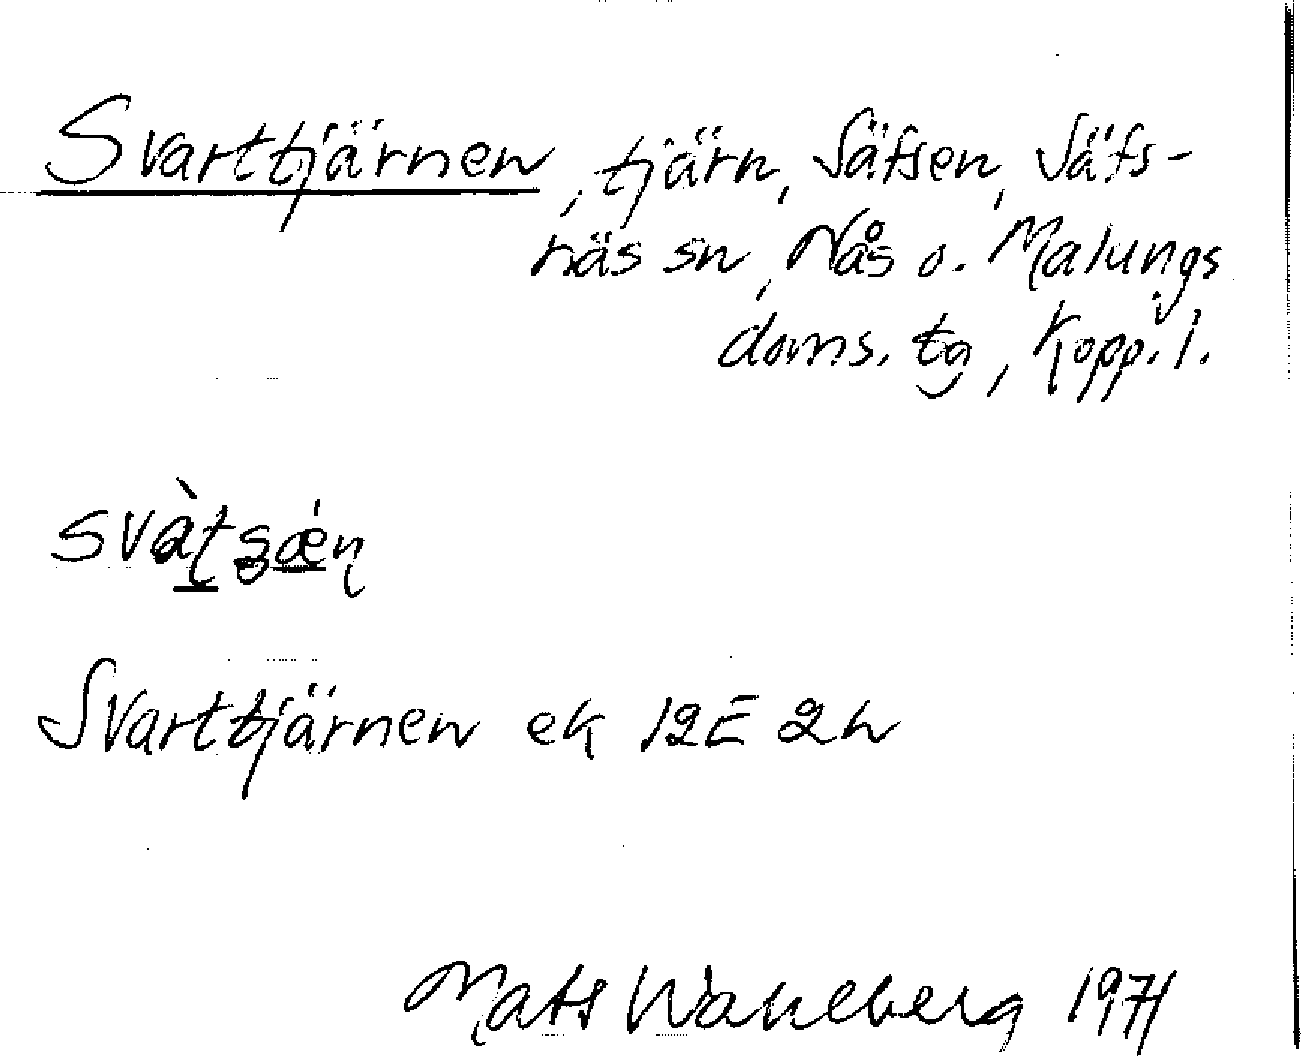 Svarttjärnen, tjärn, Säfsen, Säfs-
näs sn, Nås o. Malungs
doms. tg, Kopp. l.
Svarttjärnen ek 12E 2h
Mats Wahlberg 1971